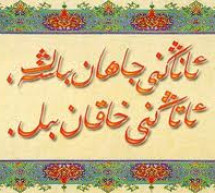 ئاناڭنى جاھان بىلسەڭ،
ئاتاڭنى خاقان بىل.